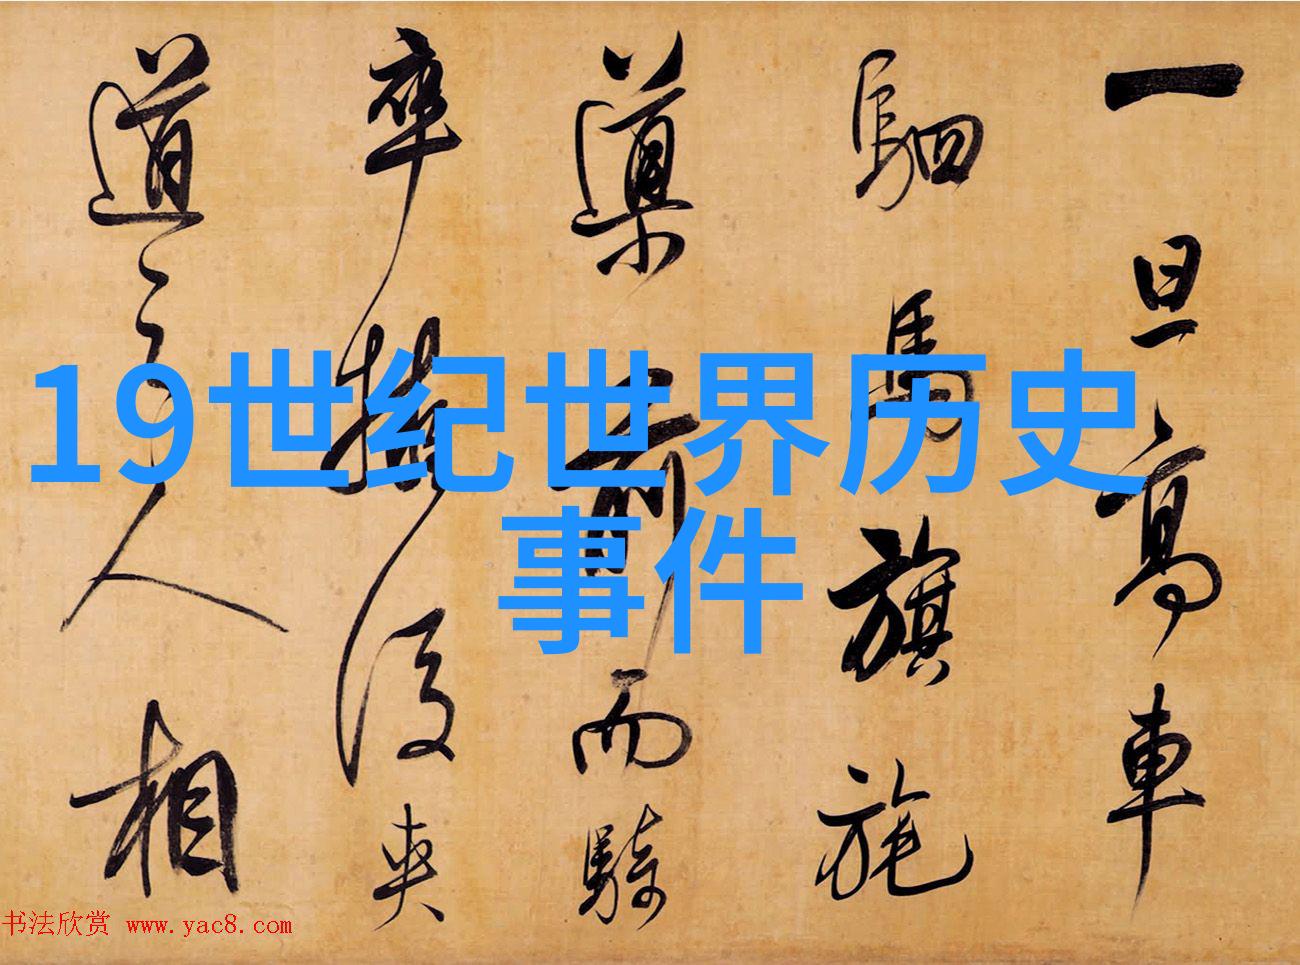 19世纪世界历史
事件
一旦高車
駟馬旗旄
導前而騎
卒擁後夾
道之人相
书法欣赏 www.yac8.com